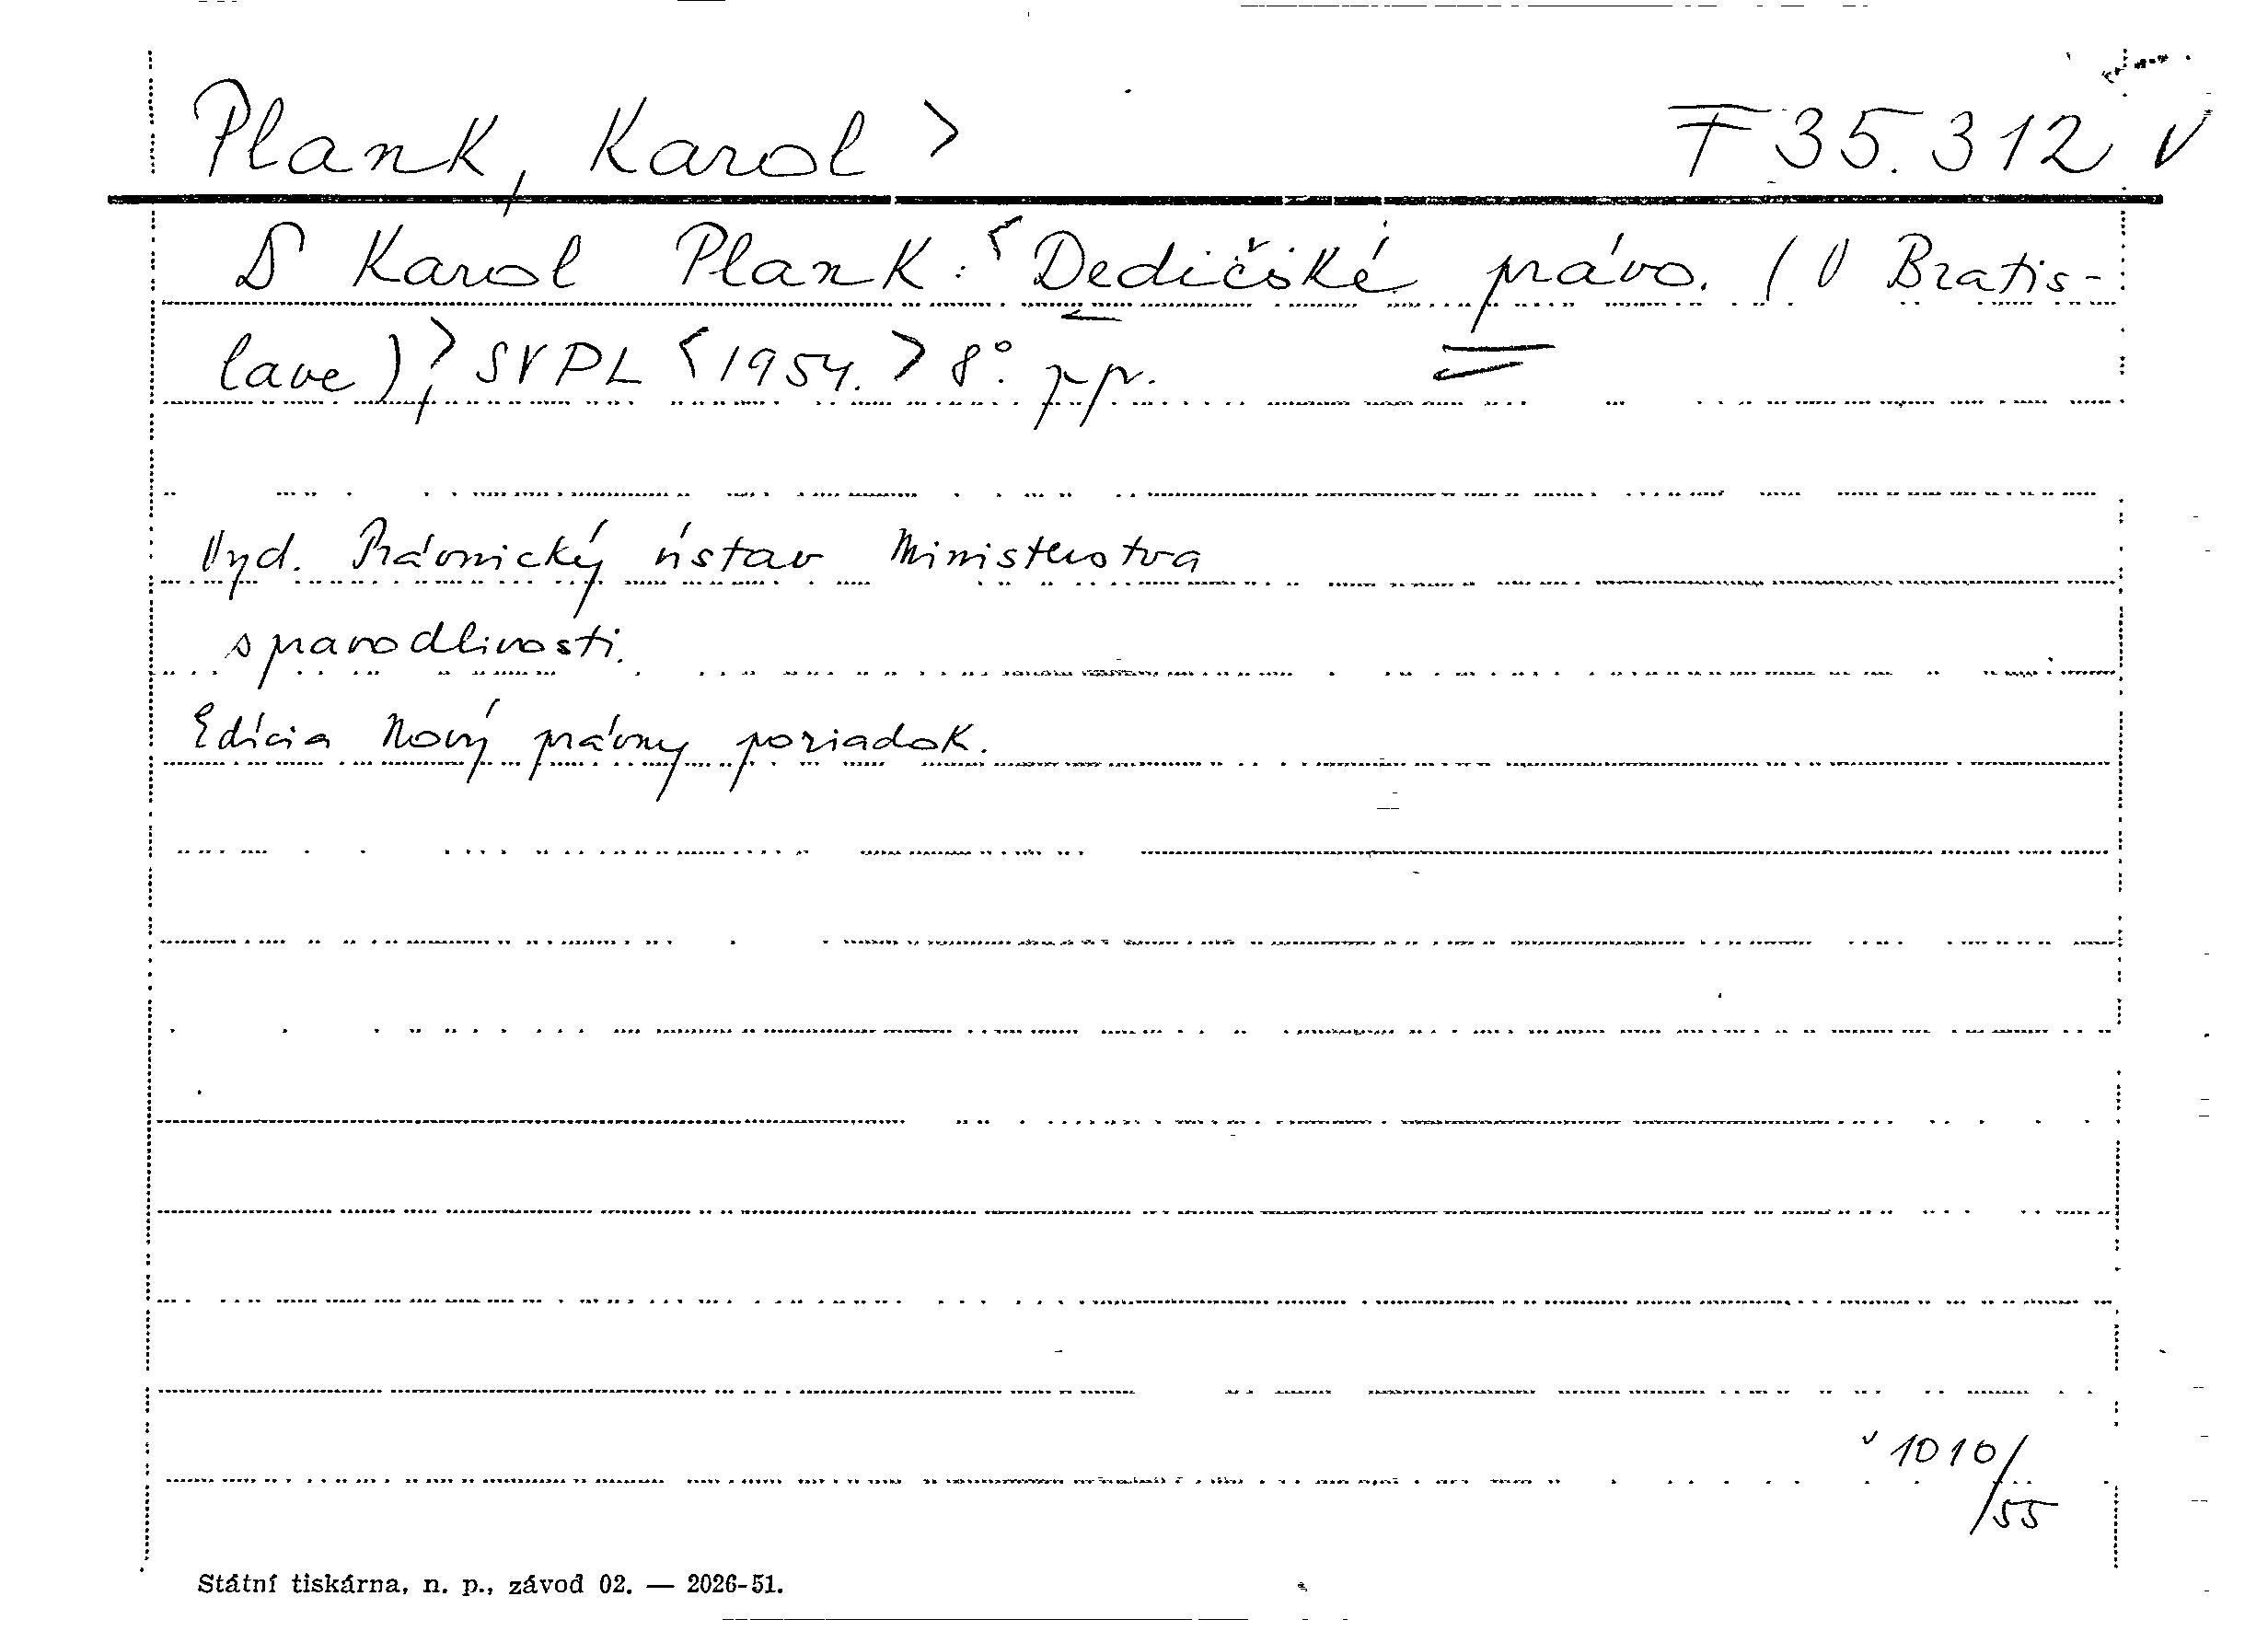 Plank, Karol > F 35.312 V
S Karol Plank: < Dedičské právo. (V Bratis-
lave) >, SVPL < 1954. > 8°. pp.
Vyd. Právnický ústav Ministerstva
spravodlivosti.
Edícia Nový právny poriadok.
v 1010/
55
Státní tiskárna, n. p., závod 02. — 2026-51.